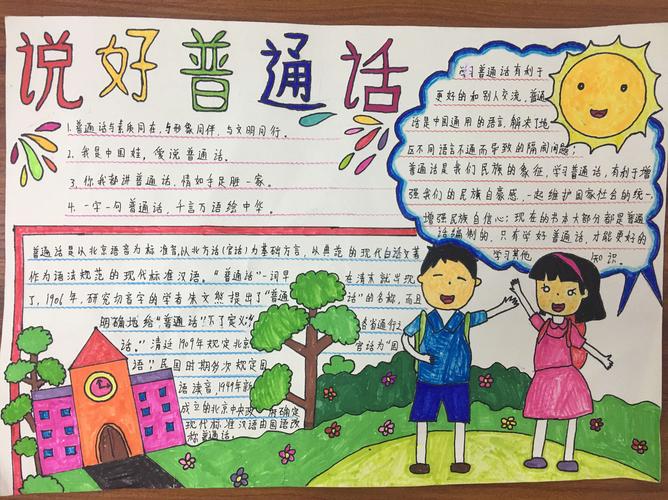 说好普通话
1.普通话与素质同在,与形象同伴,与文明同行。
2.我是中国娃,爱说普通话。
3.你我都讲普通话,情如手足胜一家。
4.一字一句普通话,千言万语绘中华。
学习普通话有利于
更好的和别人交流。普通
话是中国通用的语言,解决了地
区不同语言不通而导致的隔阂问题;
普通话是我们民族的象征,学习普通话,有利于增
强我们的民族自豪感,一起维护国家社会的统一,
增强民族自信心;现在的书本大部分都是普通
话编制的,只有学好普通话,才能更好的
学习其他 知识。
普通话是以北京语音为标准音,以北方话(官话)为基础方言,从典范的现代白话文著
作为语法规范的现代标准汉语。“普通话”一词早 在清末就出现
了,1906年,研究切音字的学者朱文熊提出了“普通 话”的名称,而且
明确地给“普通话”下了定义 各省通行之
话。”清廷1909年规定北京 官话为“国
语”民国时期多次规定国
语读音1949年新
成立的北京中央政 府确定
现代标准汉语由国语改
称普通话。